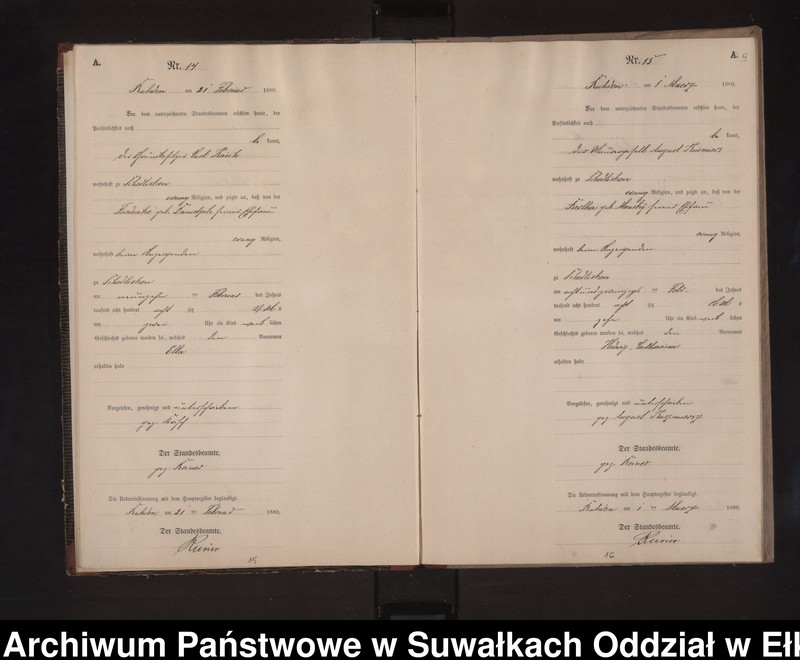 A.
Nr. 14
am 21 Februar 1880.
Vor dem unterzeichneten Standesbeamten erschien heute, der
Persönlichkeit nach
be kannt,
der Carl
wohnhaft zu Schedlisken
evang Religion, und zeigte an, daß von der
geb. seiner Ehefrau
evang Religion,
wohnhaft beim Anzeigenden
zu Schedlisken
am neunzehn ten Februar des Jahres
tausend acht hundert acht zig
um zwei Uhr ein Kind weib lichen
Geschlechts geboren worden sei, welches den Vornamen
erhalten habe
Vorgelesen, genehmigt und unterschrieben
gez.
Der Standesbeamte.
gez. Reiner
Die Uebereinstimmung mit dem Hauptregister beglaubigt
am 21 ten Februar 1880.
Der Standesbeamte.
Reiner
15
A.
Nr. 15
am 1 Maerz 1880.
Vor dem unterzeichneten Standesbeamten erschien heute, der
Persönlichkeit nach
be kannt,
der August
wohnhaft zu Schedlisken
evang Religion, und zeigte an, daß von der
geb. seiner Ehefrau
evang Religion,
wohnhaft beim Anzeigenden
zu Schedlisken
am achtundzwanzigs ten Febr. des Jahres
tausend acht hundert acht zig
um zehn Uhr ein Kind weib lichen
Geschlechts geboren worden sei, welches den Vornamen
Hedwig Catharina
erhalten habe
Vorgelesen, genehmigt und unterschrieben
gez. August
Der Standesbeamte.
gez. Reiner
Die Uebereinstimmung mit dem Hauptregister beglaubigt
am 1 ten Maerz 1880.
Der Standesbeamte.
Reiner
16
Archiwum Państwowe w Suwałkach Oddział w Ełk